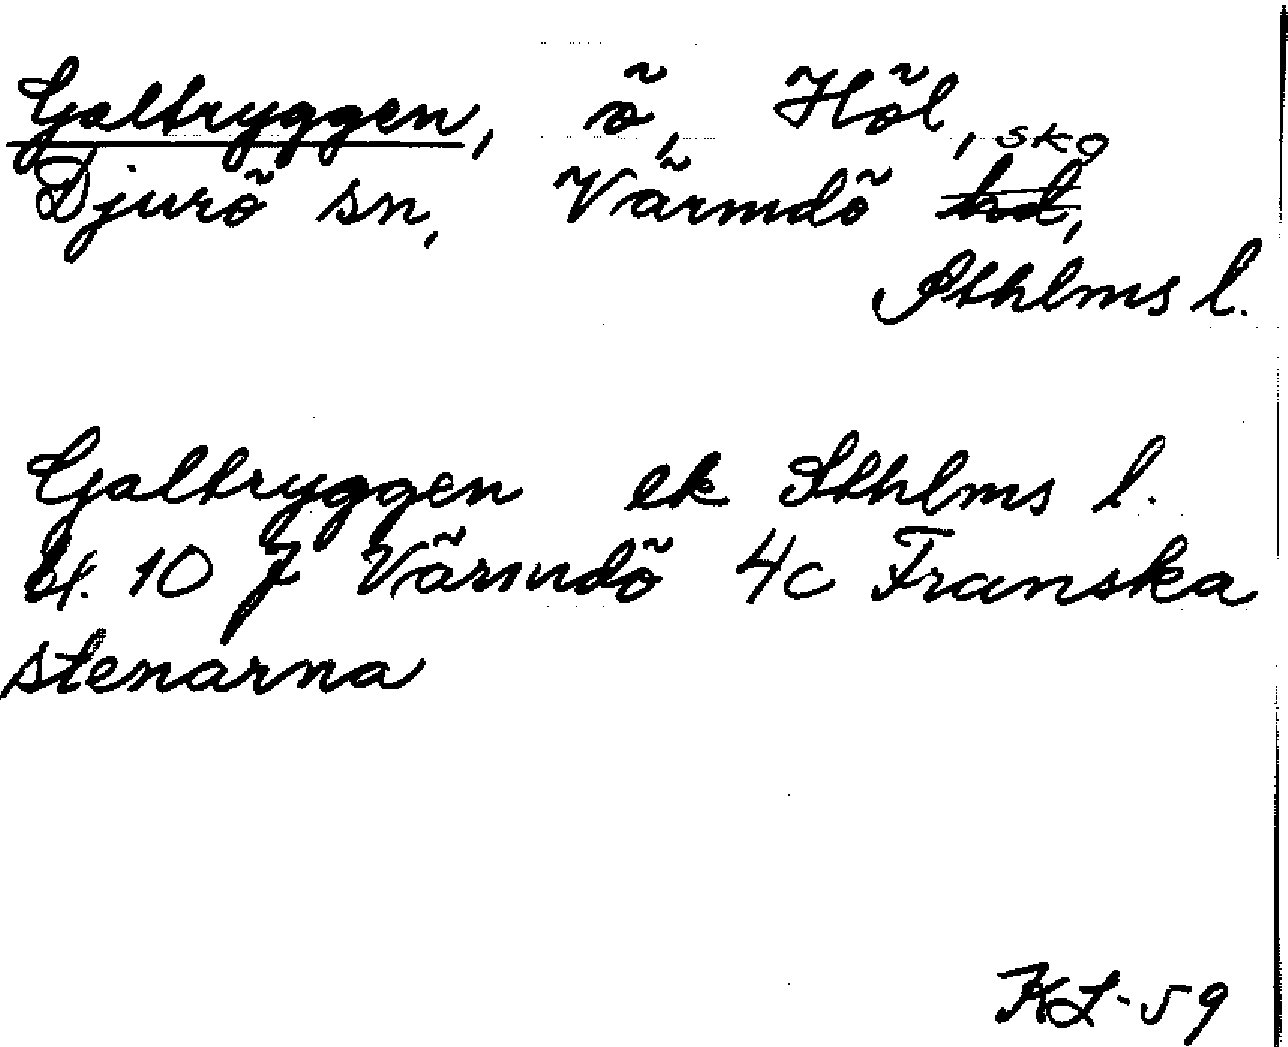 Galtryggen, ö, Höl, sko
Djurö sn, Värmdö hd,
Sthlms l.
Galtryggen ek Sthlms l.
bl. 10 J Värmdö 4c Franska
stenarna
KL-59